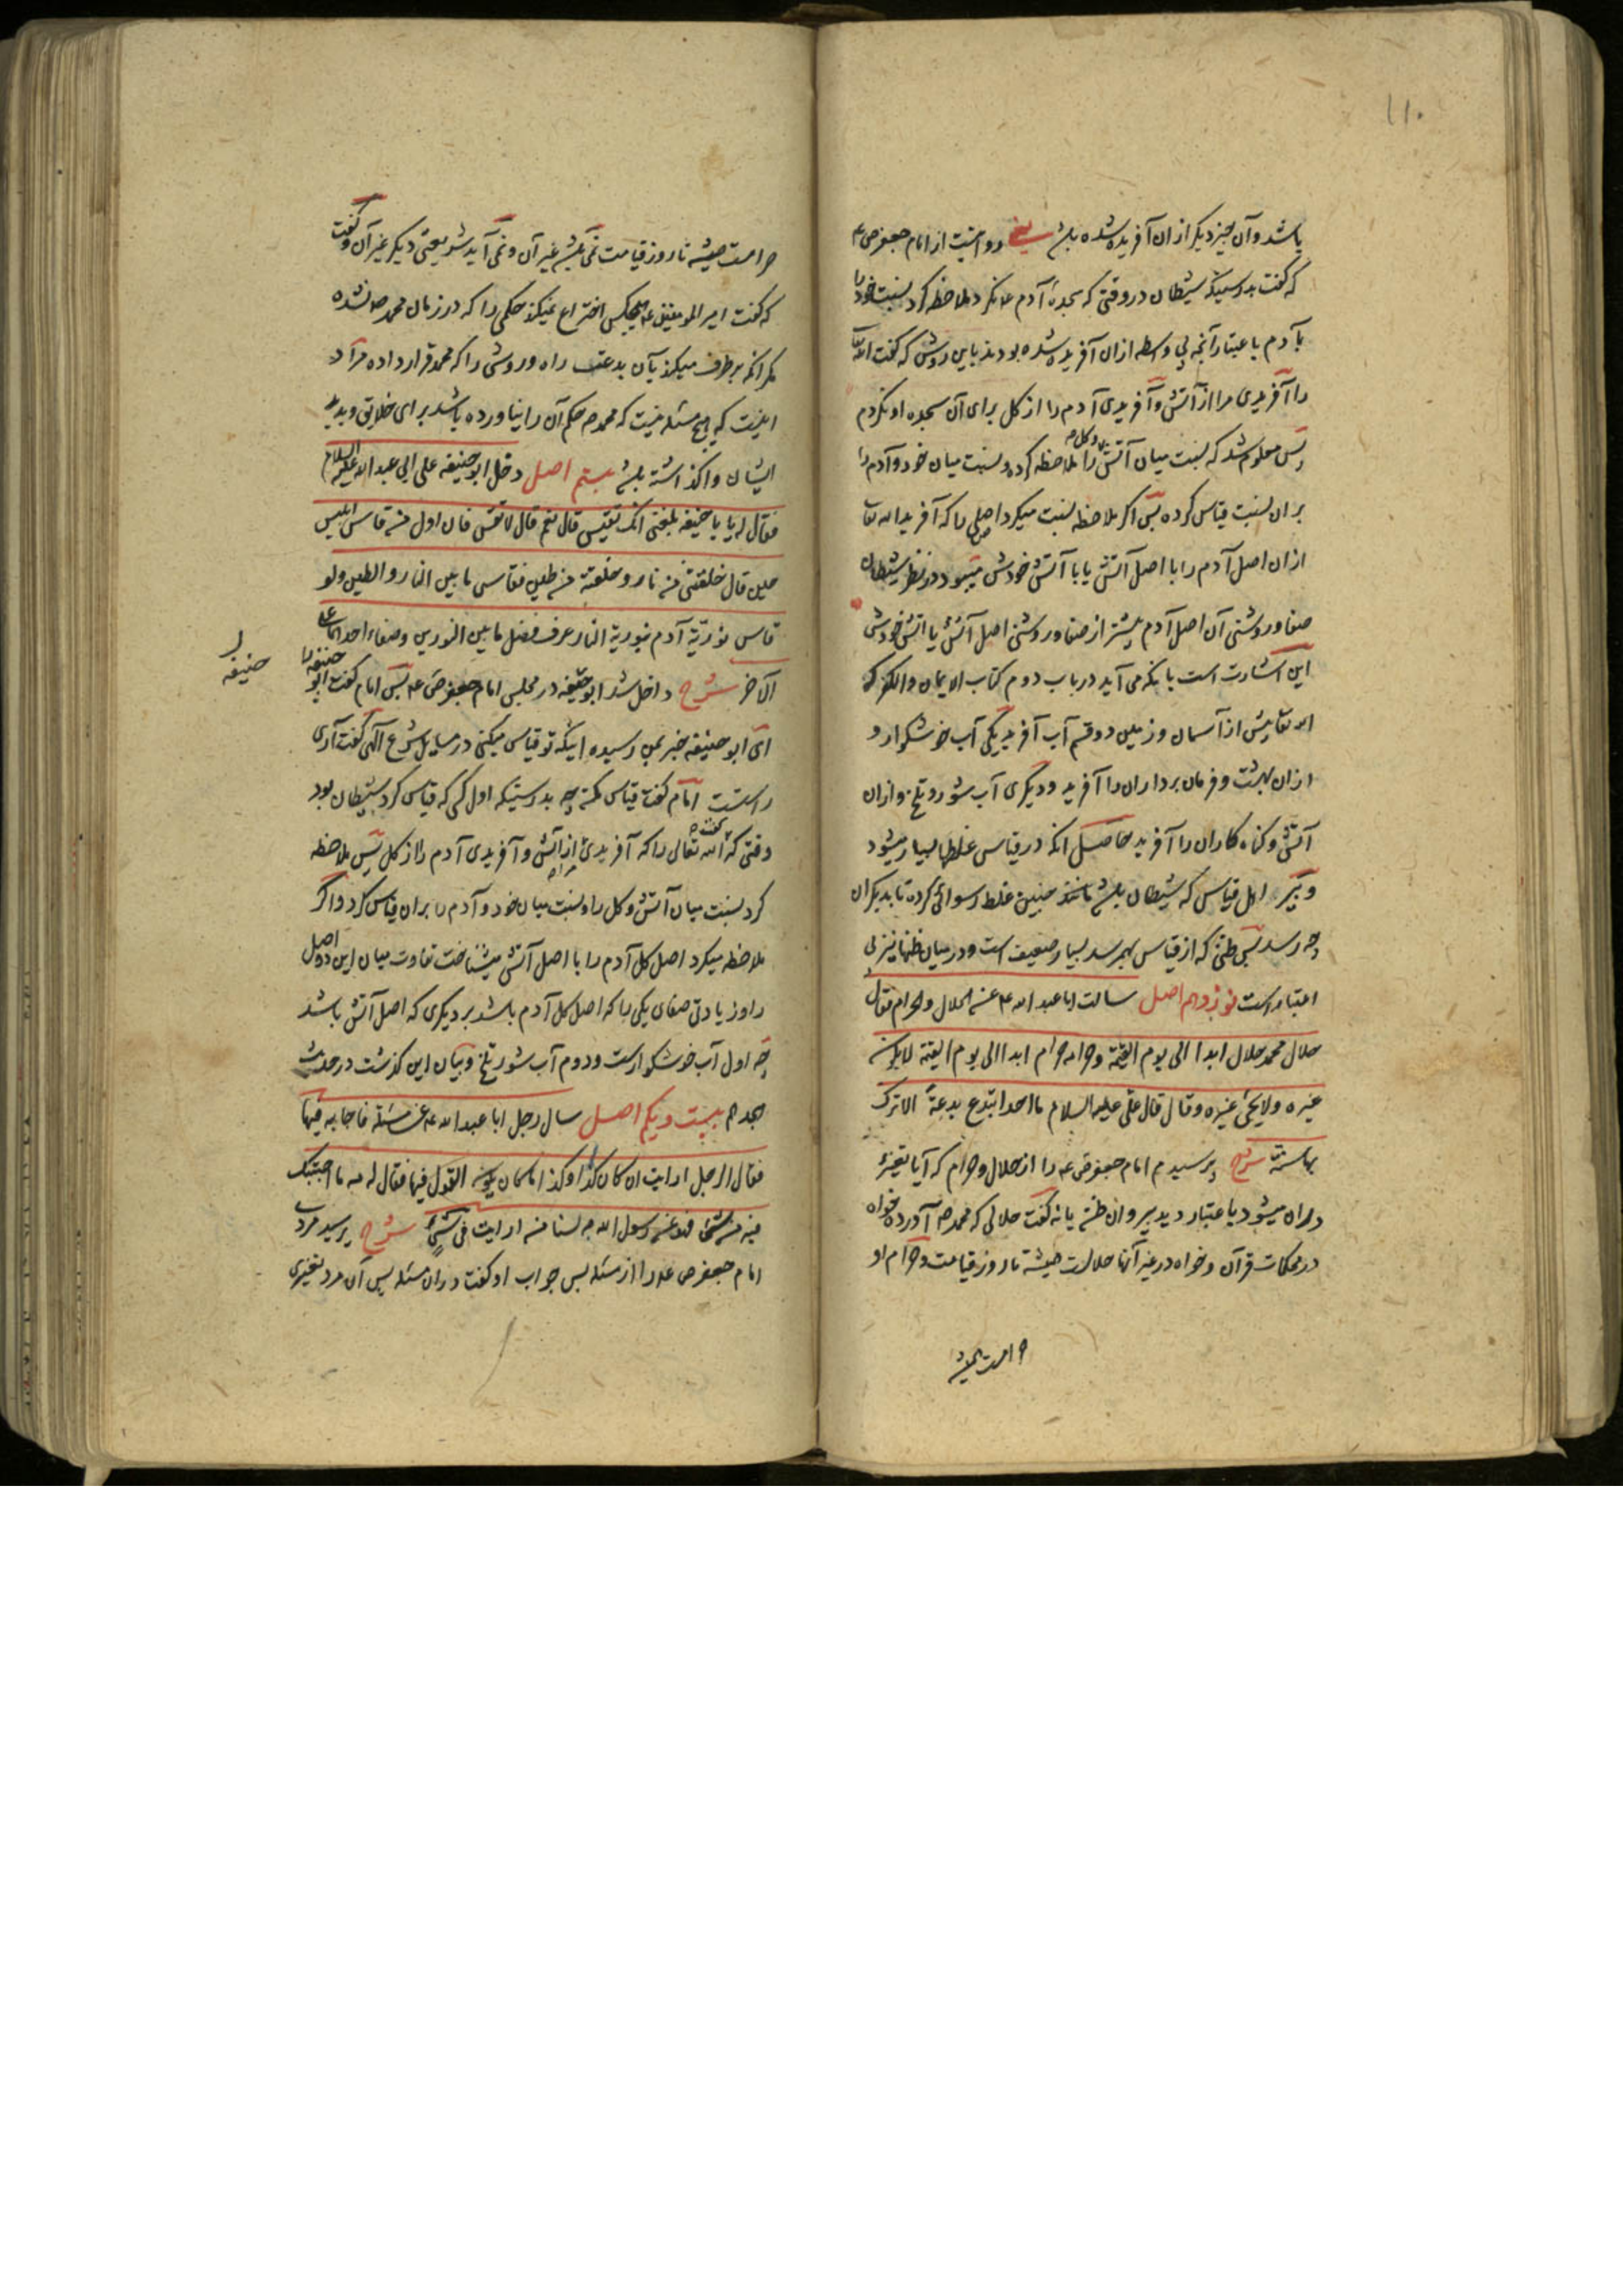 ١١٠
باشد و آن چیز دیگر ازان آفریده شده باشد یعنی روایتست از امام جعفر ص ع
که گفت بدرستیکه شیطان در وقتی که سجدهٔ آدم ع نکرد ملاحظه کرد نسبت خود را
بآدم باعتبار آنچه بی واسطه ازان آفریده شده بودند باین روش که گفت الله تعا
را آفریدی مرا از آتش و آفریدی آدم را از کل برای آن سجده او نکردم
پس معلوم شد که نسبت میان آتش و کل را ملاحظه کرده و نسبت میان خود و آدم را
بران نسبت قیاس کرده پس اکر ملاحظه نسبت میکرد اصلی را که آفرید الله تعا
ازان اصل آدم را با اصل آتش یا با آتش خودش میبود در نظر شیطان
صفا و روشنی آن اصل آدم بیشتر از صفا و روشنی اصل آتش یا اتش خودش
این اشارت است بانکه می آید در باب دوم کتاب الایمان والکفر که
الله تعا پیش از آسمان و زمین دو قسم آب آفرید یکی آب خوشکوار و
ازان بهشت و فرمان برداران را آفرید و دیگری آب شور و تلخ و ازان
آتش و کناه کاران را آفرید حاصل انکه در قیاس غلطها بسیار میشود
و پیر اهل قیاس که شیطان باشد چنین غلط رسوائی کرده تا بدیکران
چه رسد پس ظنی که از قیاس بهم رسد بسیار ضعیف است و در میان ظنها نیز بی
اعتبار است نوزدهم اصل سالت ابا عبد الله ع عن الحلال والحرام فقال
حلال محمد حلال ابدا الی یوم القیمة وحرامه حرام ابدا الی یوم القیمة لا یکون
غیره ولا یجئ غیره وقال قال علی علیه السلام ما احد ابتدع بدعة الا ترک
بها سنة شرح پرسیدم امام جعفر ص ع را از حلال و حرام که آیا تغییر
دران میشود باعتبار دیدپیروان ظن یا نه گفت حلالی که محمد ص آورده خواه
در محکمات قرآن و خواه در غیر آنها حلالست همیشه تا روز قیامت و حرام او
حرامست همیشه
حرامست همیشه تا روز قیامت نمی باشد غیر آن و نمی آید شریعتی دیگر غیر آن و گفت
که گفت امیر المومنین ع هیچکس اختراع نمیکند حکمی را که در زمان محمد ص نشده
مکر انکه برطرف میکند بآن بدعت راه و روشی را که محمد قرار داده مراد
اینست که هیچ مسئله نیست که محمد ص حکم آن را نیاورده باشد برای خلایق و بدید
ایشان واکذاشته باشد بیستم اصل دخل ابو حنیفه علی ابی عبد الله علیه السلام
فقال له یا با حنیفه بلغنی انک تقیس قال نعم قال لا تقس فان اول من قاس ابلیس
حین قال خلقتنی من نار وخلقته من طین فقاس ما بین النار والطین ولو
قاس نوریة آدم بنوریة النار عرف فضل ما بین النورین وصفاء احدهما علی
الآخر شرح داخل شد ابو حنیفه در مجلس امام جعفر ص ع پس امام گفت ابو حنیفه را
ل
حنیفه
ای ابو حنیفه خبر بمن رسیده اینکه تو قیاس میکنی در مسایل شرع الهی گفت آری
راستست امام گفت قیاس مکن چه بدرستیکه اول کسی که قیاس کرد شیطان بود
وقتی که گفت الله تعالی را که آفریدی مرا از آتش و آفریدی آدم را از کل پس ملاحظه
کرد نسبت میان آتش و کل را و نسبت میان خود و آدم را بران قیاس کرد و اکر
ملاحظه میکرد اصل کل آدم را با اصل آتش میشناخت تفاوت میان این دو اصل
را و زیادتی صفای یکی را که اصل کل آدم باشد بر دیگری که اصل آتش باشد
چه اول آب خوشکوارست و دوم آب شور تلخ و بیان این کذشت در حدیث
هجدهم بیست و یکم اصل سال رجل ابا عبد الله ع عن مسئلة فاجابه فیها
فقال الرجل ارایت ان کان کذا وکذا ما کان یکون القول فیها فقال له مه ما اجبتک
فیه من شئ فهو عن رسول الله ص لسنا من ارایت فی شئ شرح پرسید مردی
امام جعفر ص ع را از مسئله پس جواب او گفت دران مسئله پس آن مرد بتغییری